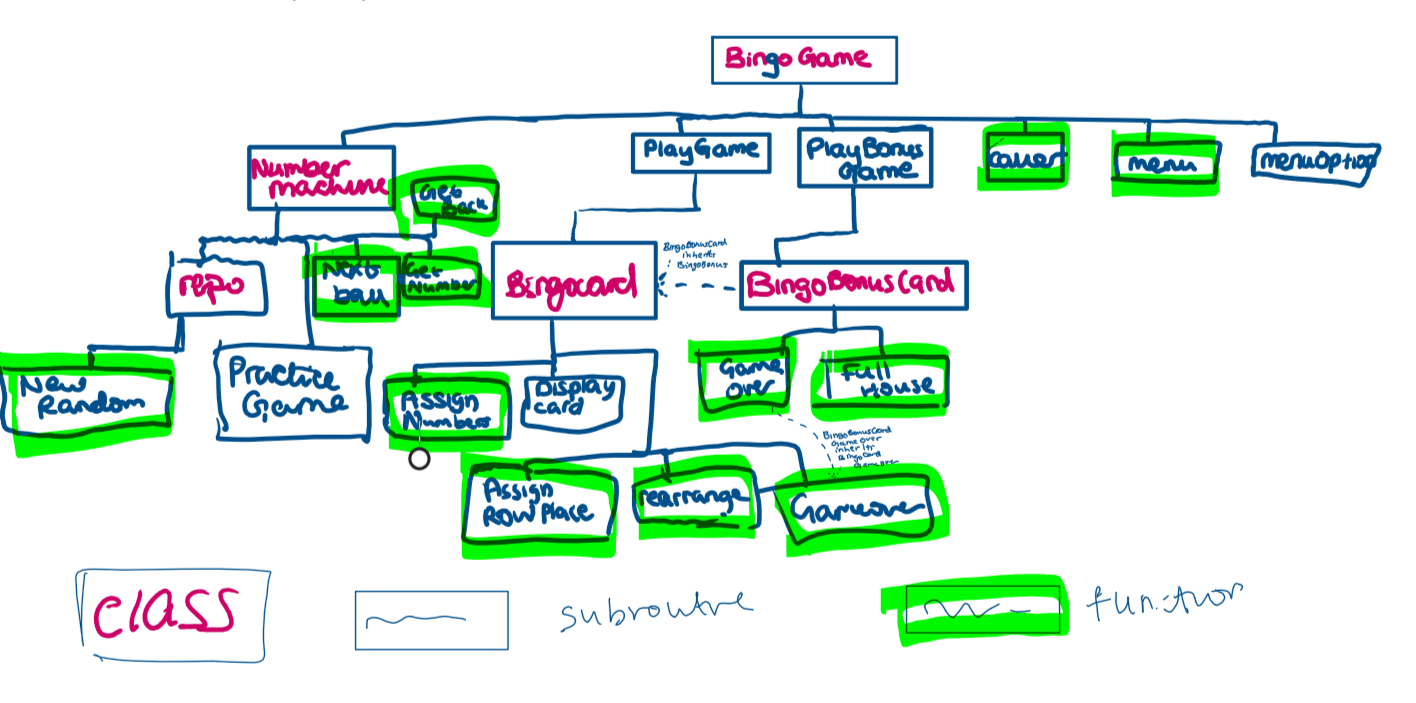 Bingo Game
Number
machine
PlayGame
PlayBonus
Game
caller
menu
menuOption
Get
Back
repo
Next
ball
Get
Number
Bingocard
BingoBonusCard
inherits
BingoBonus
BingoBonusCard
New
Random
Practice
Game
Assign
Numbers
Display
card
Game
Over
Full
House
BingoBonusCard
Game over
inherits
BingoCard
Gameover
Assign
Row Place
rearrange
Gameover
class
subroutine
function